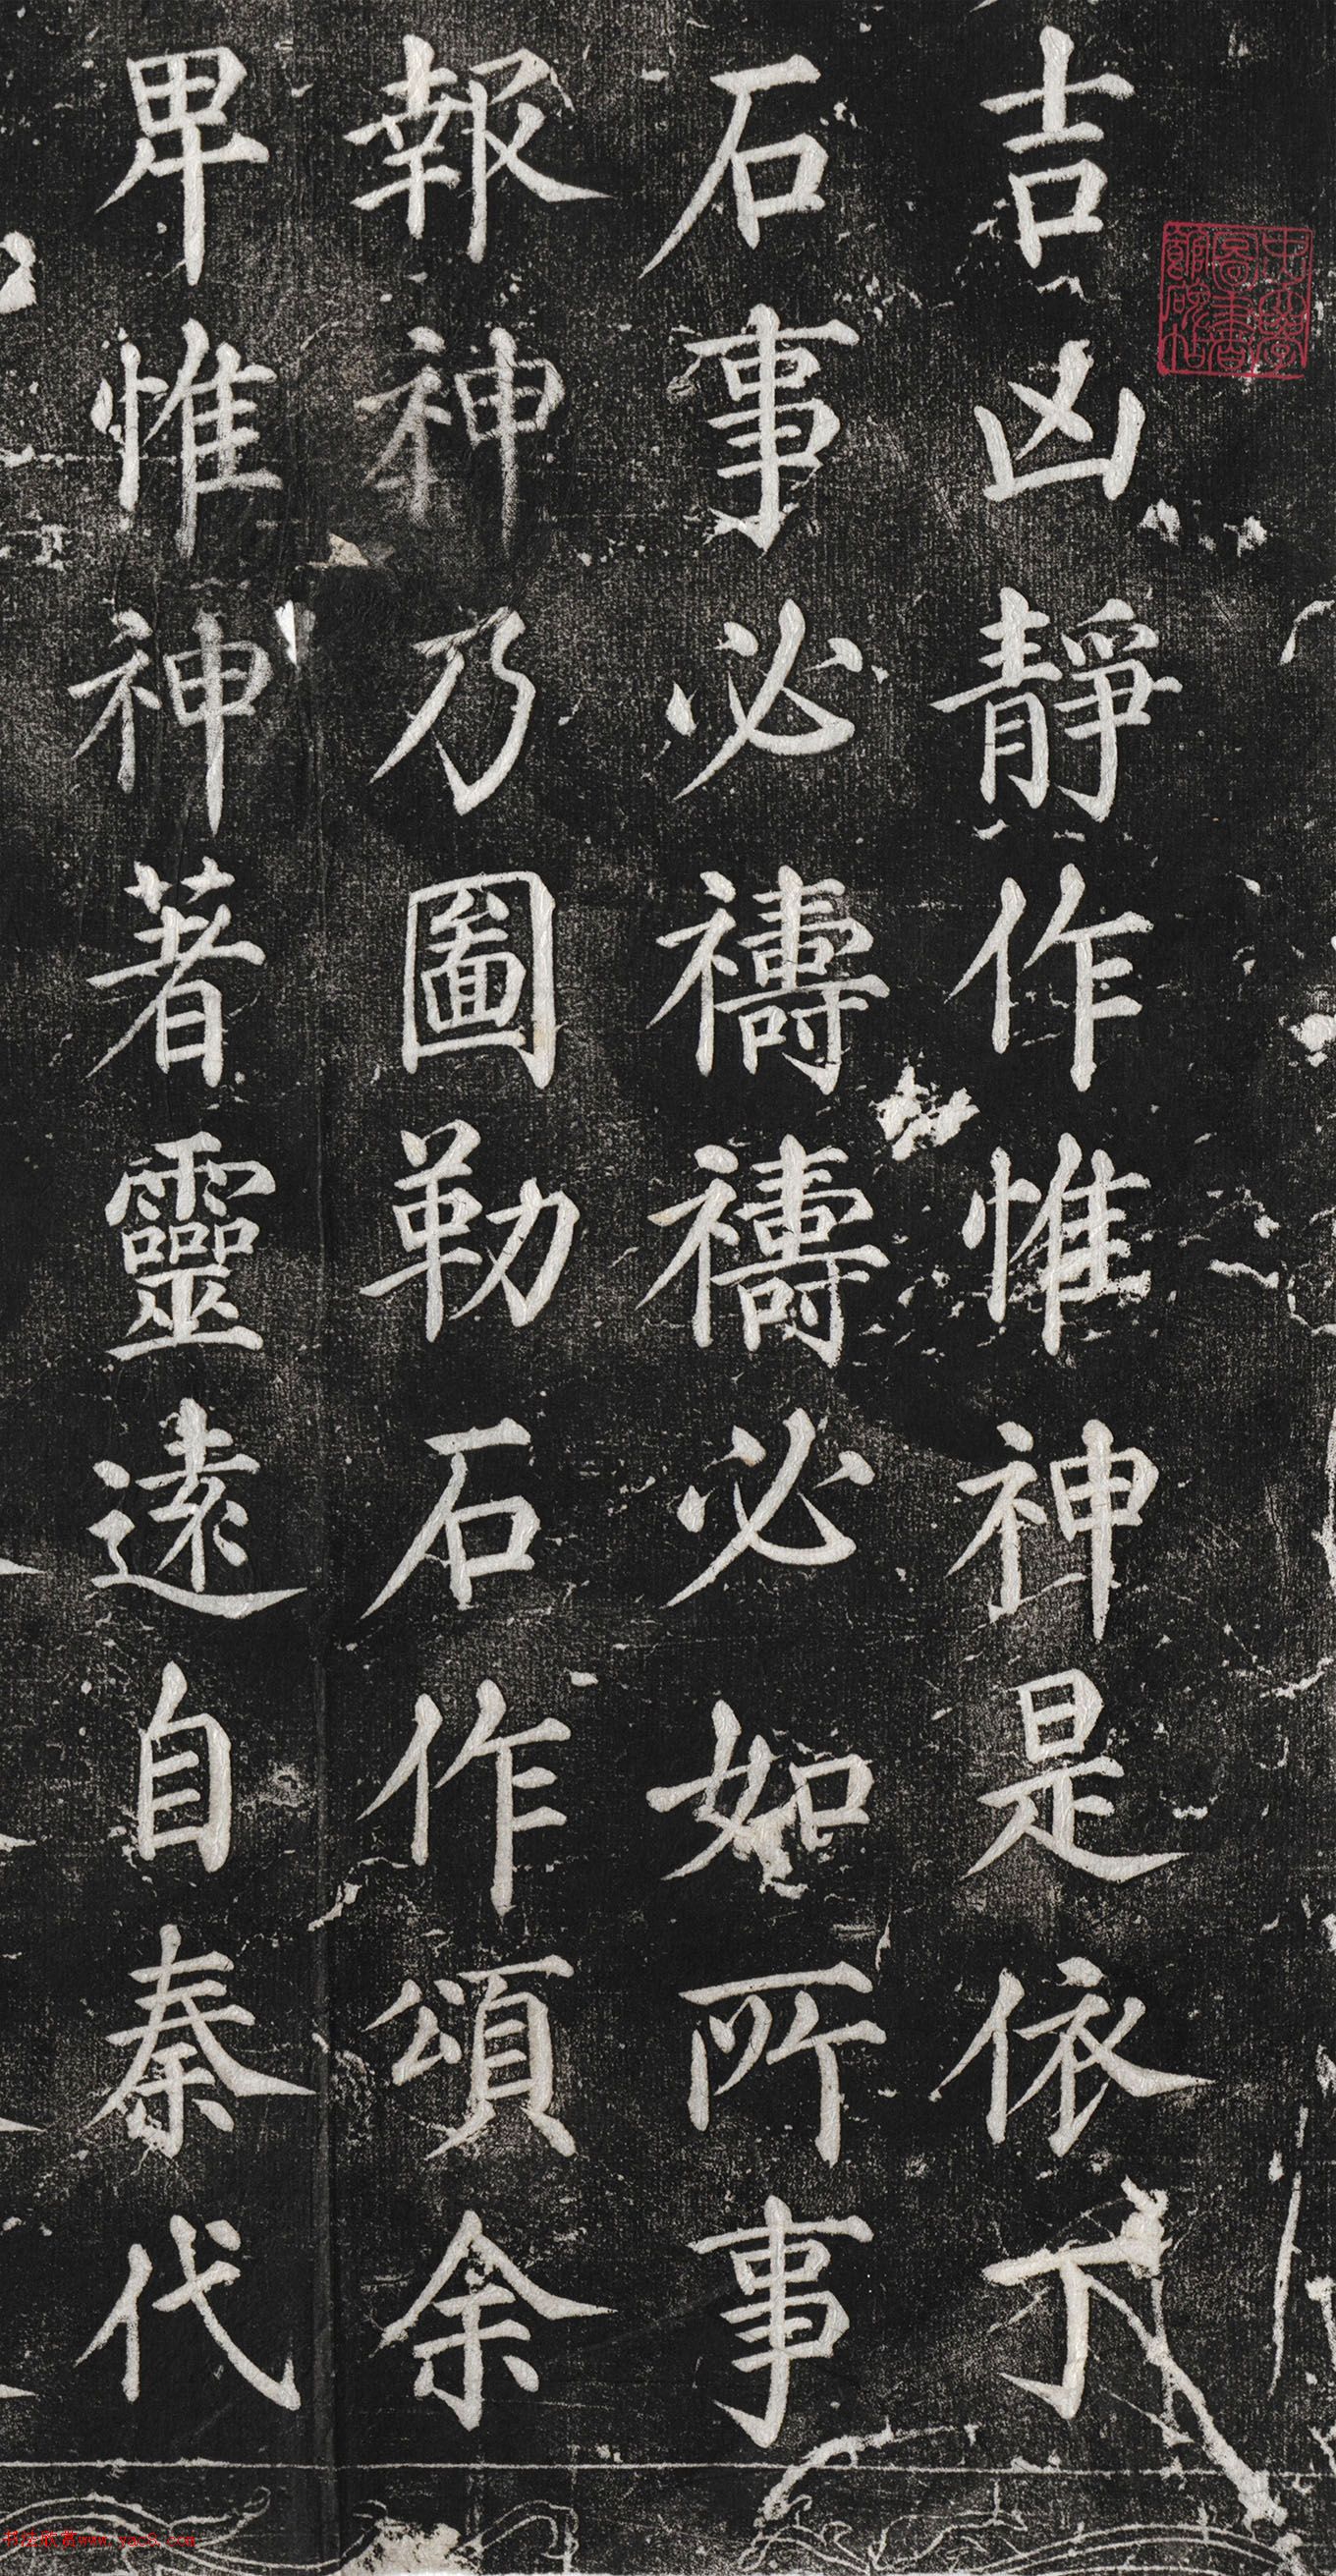 吉凶靜作惟神是依丁
石事必禱禱必如所事
報神乃圖勒石作頌余
卑惟神神著靈遠自秦代